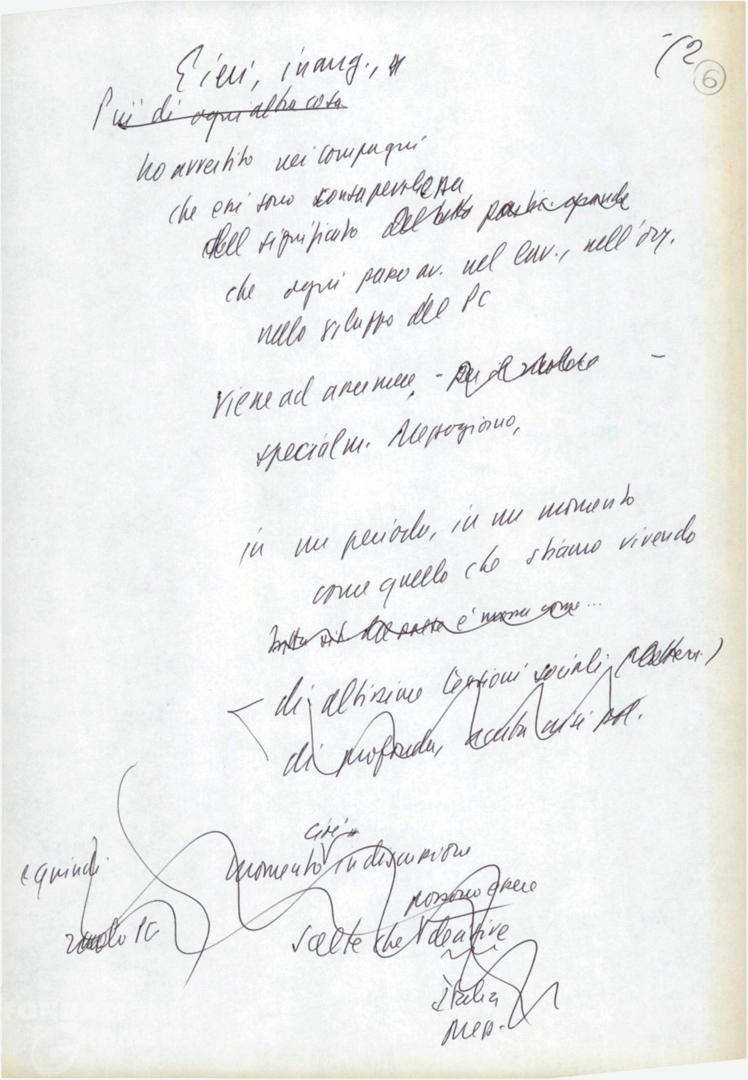 (2
6
E ieri, inaug.,
Più di ogni altra cosa
ho avvertito nei compagni
che essi sono consapevolezza
del significato del tutto
che ogni passo av. nel lav., nell'org.
nello sviluppo del PC
viene ad assumere, -
specialm. Mezzogiorno,
in un periodo, in un momento
come quello che stiamo vivendo
è
di altissime tensioni sociali
di profonda, acuta crisi pol.
e quindi
momento in discussione
possono essere
ruolo PC
scelte che decisive
Italia
Mezz.